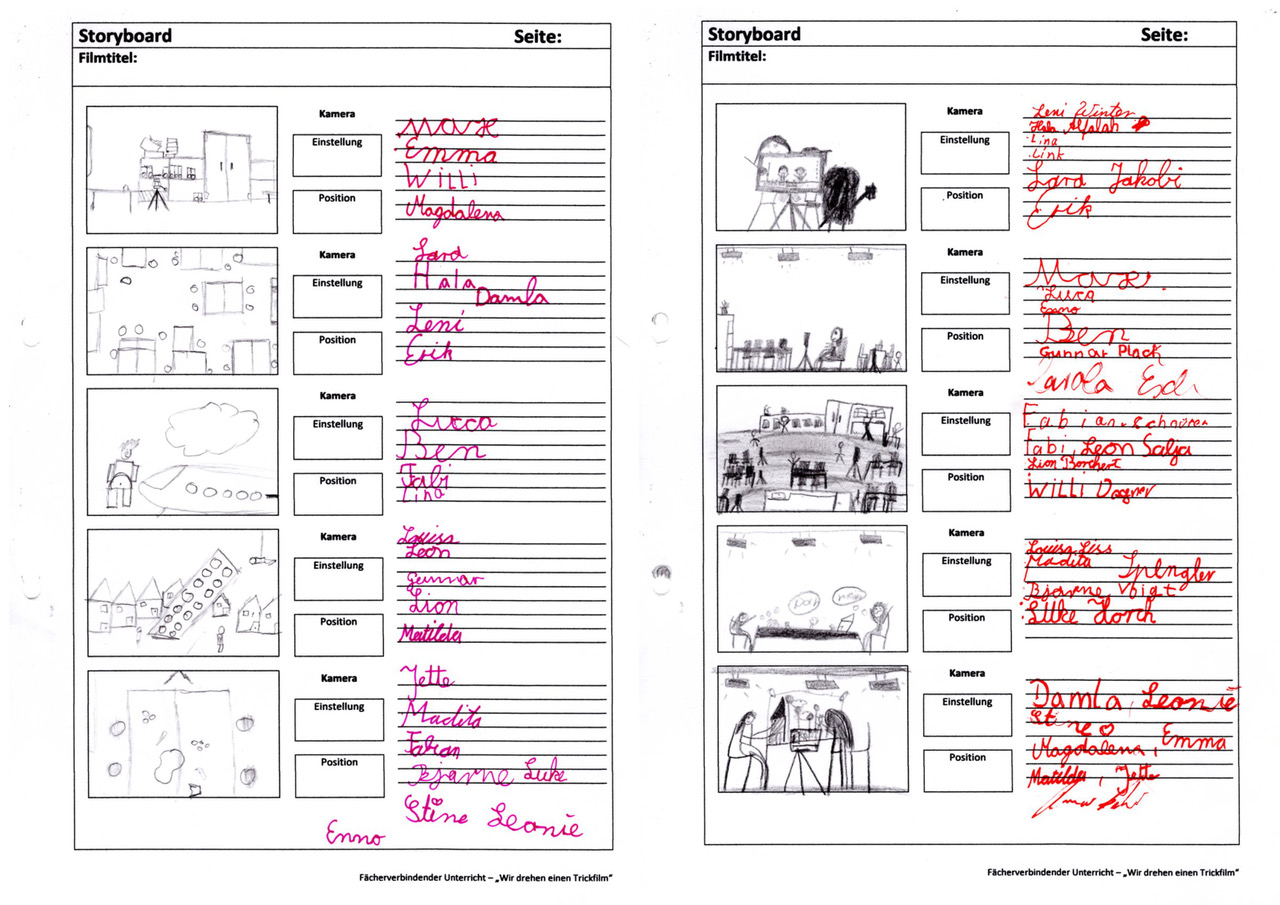 Storyboard Seite:
Filmtitel:
Kamera
Einstellung
Position
Max
Emma
Willi
Magdalena
Kamera
Einstellung
Position
Lara
Hala
Damla
Leni
Erik
Kamera
Einstellung
Position
Lucca
Ben
Fabi
Lina
Kamera
Einstellung
Position
Louisa
Leon
Gunnar
Lion
Matilda
Kamera
Einstellung
Position
Jette
Madita
Fabian
Bjarne Luke
Stine Leonie
Enno
Fächerverbindender Unterricht – „Wir drehen einen Trickfilm“
Storyboard Seite:
Filmtitel:
Kamera
Einstellung
Position
Leni Winter
Hala Alfalah
Lina
Link
Lara Jakobi
Erik
Kamera
Einstellung
Position
Max
Luca
Enno
Ben
Gunnar Plack
Carola
Kamera
Einstellung
Position
Fabian
Fabi Leon
Lion Borchert
Willi
Kamera
Einstellung
Position
Louisa Liss
Madita Spengler
Bjarne Voigt
Luke Horch
Kamera
Einstellung
Position
Damla, Leonie
Stine
Magdalena, Emma
Matilda, Jette
Fächerverbindender Unterricht – „Wir drehen einen Trickfilm“